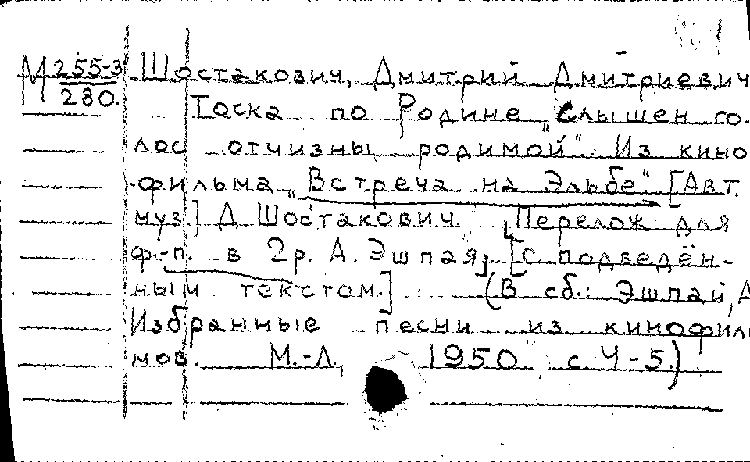 М 255-3
280.
Шостакович, Дмитрий Дмитриевич
Тоска по Родине „Слышен го-
лос отчизны родимой" Из кино
фильма „Встреча на Эльбе" [Авт.
муз.] Д. Шостакович. [Перелож для
ф.-п. в 2р. А. Эшпая], [с подведён-
ным текстом.] (В сб.: Эшпай, А
Избранные песни из кинофиль
мов. М.-Л., 1950 с. 4-5.)